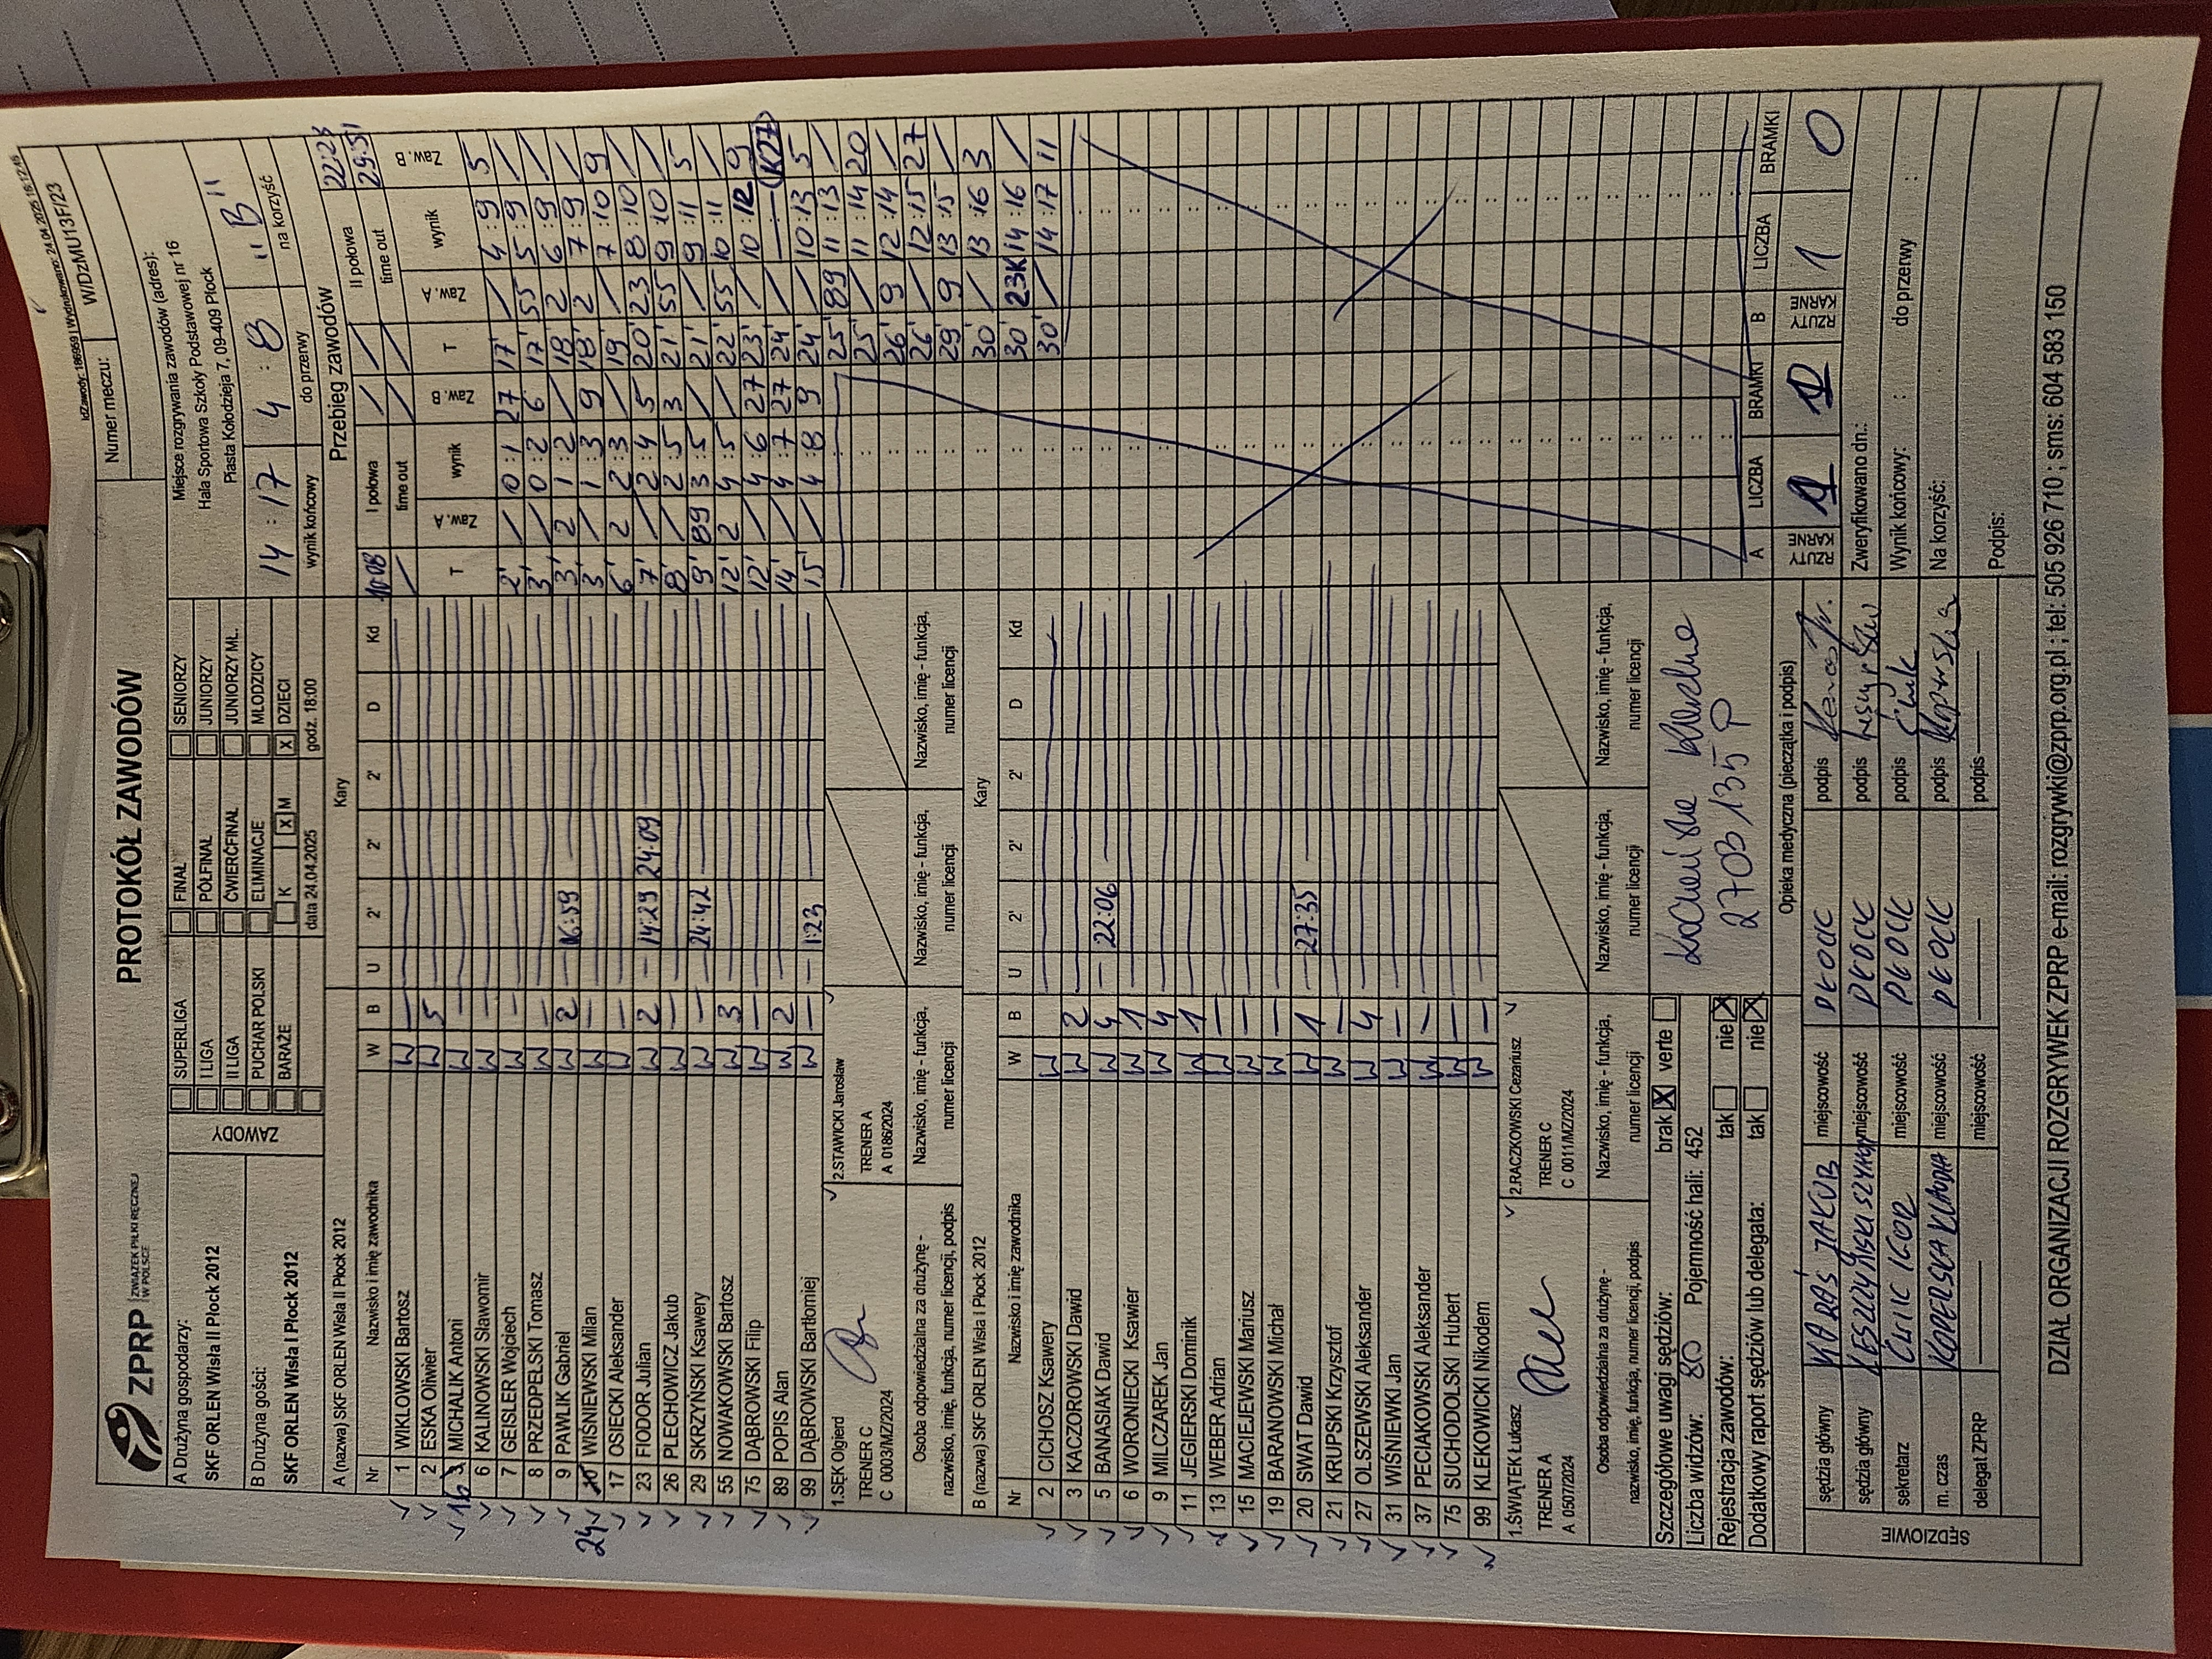 IdZawody: 186959 | Wydrukowano: 24.04.2025 16:12:45
ZPRP ZWIĄZEK PIŁKI RĘCZNEJ W POLSCE
PROTOKÓŁ ZAWODÓW
Numer meczu: W/DzMU13F/23
A Drużyna gospodarzy:
SKF ORLEN Wisła II Płock 2012
B Drużyna gości:
SKF ORLEN Wisła I Płock 2012
ZAWODY
SUPERLIGA FINAŁ SENIORZY
I LIGA PÓŁFINAŁ JUNIORZY
II LIGA ĆWIERĆFINAŁ JUNIORZY MŁ.
PUCHAR POLSKI ELIMINACJE MŁODZICY
BARAŻE K X M X DZIECI
data 24.04.2025 godz. 18:00
Miejsce rozgrywania zawodów (adres):
Hala Sportowa Szkoły Podstawowej nr 16
Piasta Kołodzieja 7, 09-409 Płock
14 : 17 4 : 8 "B"
wynik końcowy do przerwy na korzyść
A (nazwa) SKF ORLEN Wisła II Płock 2012 Kary
Nr Nazwisko i imię zawodnika W B U 2' 2' 2' D Kd
1 WIKLOWSKI Bartosz W —
2 ESKA Oliwier W 5
16 MICHALIK Antoni W —
6 KALINOWSKI Sławomir W —
7 GEISLER Wojciech W —
8 PRZEDPEŁSKI Tomasz W —
9 PAWLIK Gabriel W 2 — 16:59
24 WIŚNIEWSKI Milan W —
17 OSIECKI Aleksander W —
23 FIODOR Julian W 2 — 14:29 24:09
26 PLECHOWICZ Jakub W —
29 SKRZYŃSKI Ksawery W — — 24:42
55 NOWAKOWSKI Bartosz W 3
75 DĄBROWSKI Filip W —
89 POPIS Alan W 2
99 DĄBROWSKI Bartłomiej W — — 1:23
1.SĘK Olgierd
TRENER C
C 0003/MZ/2024
2.STAWICKI Jarosław
TRENER A
A 0186/2024
Osoba odpowiedzialna za drużynę -
nazwisko, imię, funkcja, numer licencji, podpis
Nazwisko, imię - funkcja,
numer licencji
Nazwisko, imię - funkcja,
numer licencji
Nazwisko, imię - funkcja,
numer licencji
B (nazwa) SKF ORLEN Wisła I Płock 2012 Kary
Nr Nazwisko i imię zawodnika W B U 2' 2' 2' D Kd
2 CICHOSZ Ksawery W
3 KACZOROWSKI Dawid W 2
5 BANASIAK Dawid W 4 — 22:06
6 WORONIECKI Ksawier W 1
9 MILCZAREK Jan W 4
11 JEGIERSKI Dominik W 1
13 WEBER Adrian W —
15 MACIEJEWSKI Mariusz W —
19 BARANOWSKI Michał W —
20 SWAT Dawid W 1 — 27:35
21 KRUPSKI Krzysztof W —
27 OLSZEWSKI Aleksander W 4
31 WIŚNIEWKI Jan W —
37 PECIAKOWSKI Aleksander W —
75 SUCHODOLSKI Hubert W —
99 KLEKOWICKI Nikodem W —
1.ŚWIĄTEK Łukasz
TRENER A
A 0507/2024
2.RACZKOWSKI Cezariusz
TRENER C
C 0011/MZ/2024
Osoba odpowiedzialna za drużynę -
nazwisko, imię, funkcja, numer licencji, podpis
Nazwisko, imię - funkcja,
numer licencji
Nazwisko, imię - funkcja,
numer licencji
Nazwisko, imię - funkcja,
numer licencji
Przebieg zawodów
I połowa II połowa 22:23
time out time out 29:51
T Zaw. A wynik Zaw. B T Zaw. A wynik Zaw. B
2' / 0:1 27 17' / 4:9 5
3' / 0:2 6 17' 55 5:9 /
3' 2 1:2 / 18' 2 6:9 /
3' / 1:3 9 18' 2 7:9 /
6' 2 2:3 / 19' / 7:10 9
7' / 2:4 5 20' 23 8:10 /
8' / 2:5 3 21' 55 9:10 /
9' 89 3:5 / 21' / 9:11 5
12' 2 4:5 / 22' 55 10:11 /
12' / 4:6 27 23' / 10:12 9
14' / 4:7 27 24' / — (K27)
15' / 4:8 9 24' / 10:13 5
25' 89 11:13 /
25' / 11:14 20
26' 9 12:14 /
26' / 12:15 27
29' 9 13:15 /
30' / 13:16 3
30' 23K 14:16 /
30' / 14:17 11
Szczegółowe uwagi sędziów: brak X verte
Liczba widzów: 80 Pojemność hali: 452
Rejestracja zawodów: tak nie X
Dodatkowy raport sędziów lub delegata: tak nie X
2703135 P
Opieka medyczna (pieczątka i podpis)
A RZUTY KARNE LICZBA 1 BRAMKI B RZUTY KARNE LICZBA 1 BRAMKI 0
SĘDZIOWIE
sędzia główny JAKUB miejscowość PŁOCK podpis
sędzia główny miejscowość PŁOCK podpis
sekretarz IGOR miejscowość PŁOCK podpis
m. czas KOPERSKA KLAUDIA miejscowość PŁOCK podpis Koperska
delegat ZPRP miejscowość podpis
Zweryfikowano dn.:
Wynik końcowy: : do przerwy :
Na korzyść:
Podpis:
DZIAŁ ORGANIZACJI ROZGRYWEK ZPRP e-mail: rozgrywki@zprp.org.pl ; tel: 505 926 710 ; sms: 604 583 150